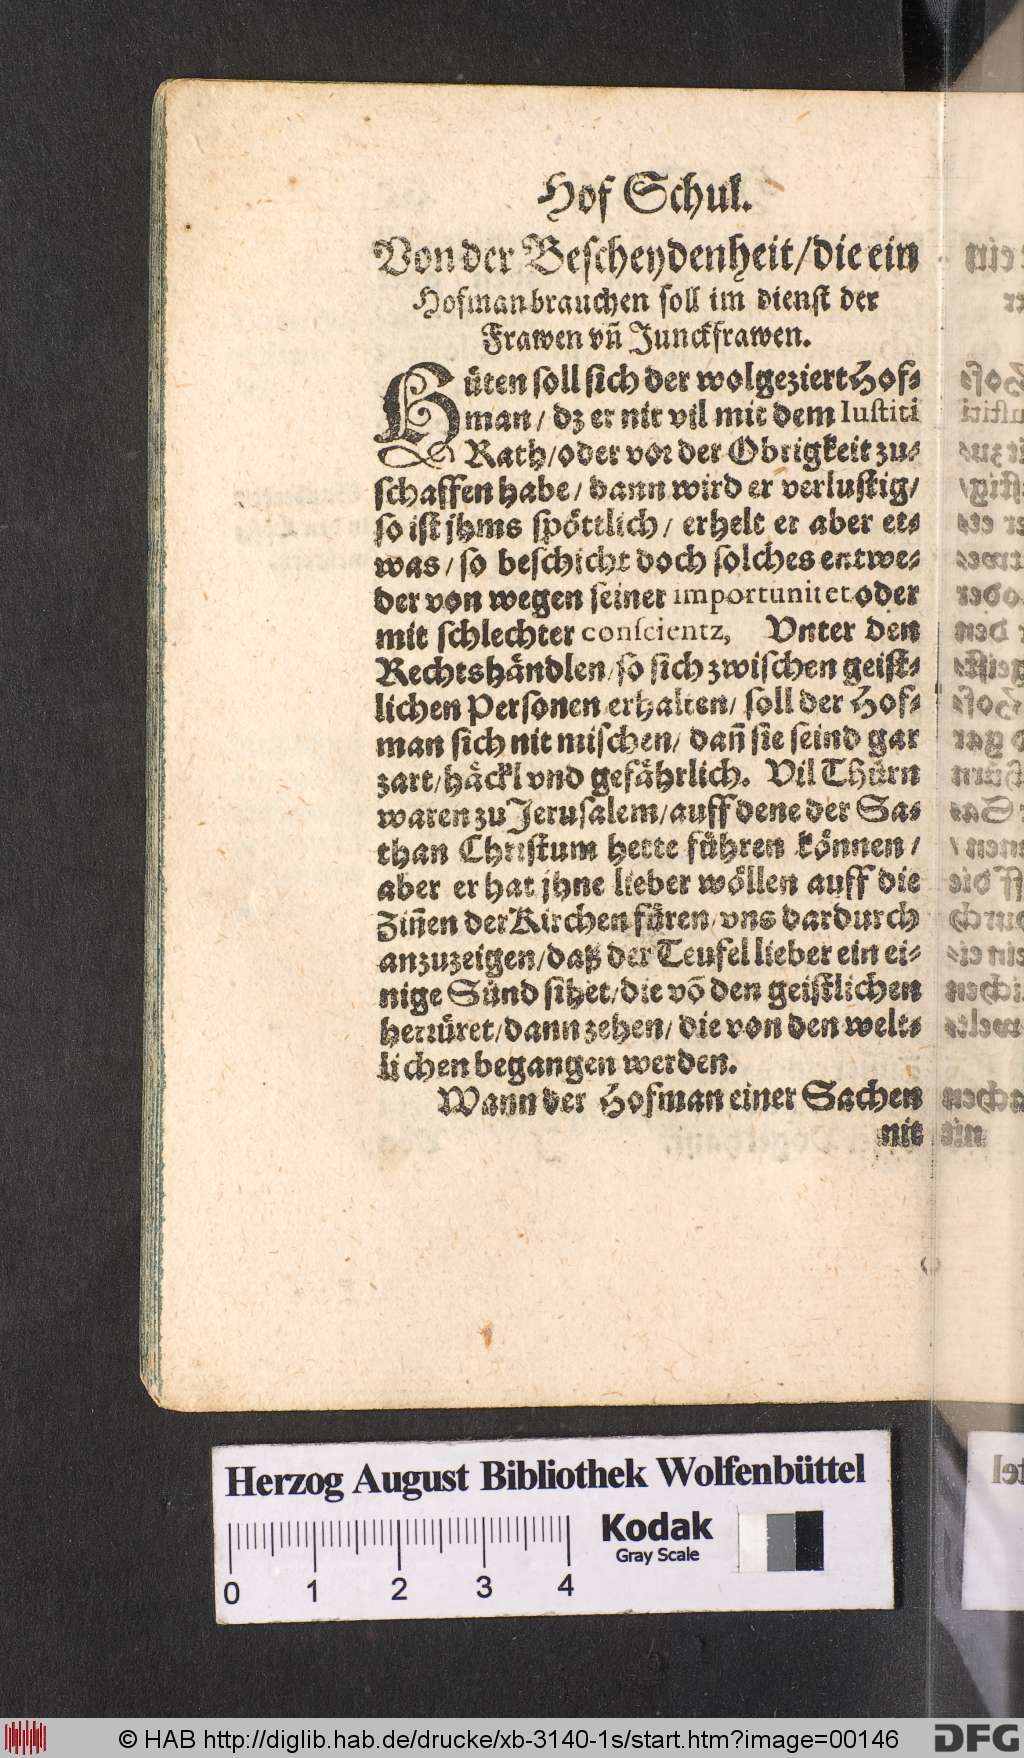 Hof Schul.
Von der Bescheydenheit/die ein
Hofman brauchen soll im dienst der
Frawen vñ Junckfrawen.
Hüten soll sich der wolgeziert Hof-
man/ dz er nit vil mit dem Iustiti
Rath/oder vor der Obrigkeit zu-
schaffen habe/ dann wird er verlustig/
so ist jhms spöttlich/ erhelt er aber et-
was/ so beschicht doch solches entwe-
der von wegen seiner importunitet oder
mit schlechter conscientz, Vnter den
Rechtshändlen/so sich zwischen geist-
lichen Personen erhalten/ soll der Hof-
man sich nit mischen/ dañ sie seind gar
zart/häckl vnd gefährlich. Vil Thürn
waren zu Jerusalem/auff dene der Sa-
than Christum hette führen können/
aber er hat jhne lieber wöllen auff die
Ziñen der Kirchen füren/vns dardurch
anzuzeigen/daß der Teufel lieber ein ei-
nige Sünd sihet/die võ den geistlichen
herrüret/dann zehen/ die von den welt-
lichen begangen werden.
Wann der Hofman einer Sachen
nit
Herzog August Bibliothek Wolfenbüttel
Kodak
Gray Scale
0 1 2 3 4
© HAB http://diglib.hab.de/drucke/xb-3140-1s/start.htm?image=00146
DFG